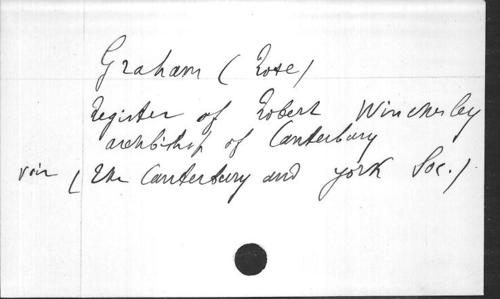 Graham (Rose)
Register of Robert Winchesley
archbishop of Canterbury
voir (The Canterbury and York Soc.)